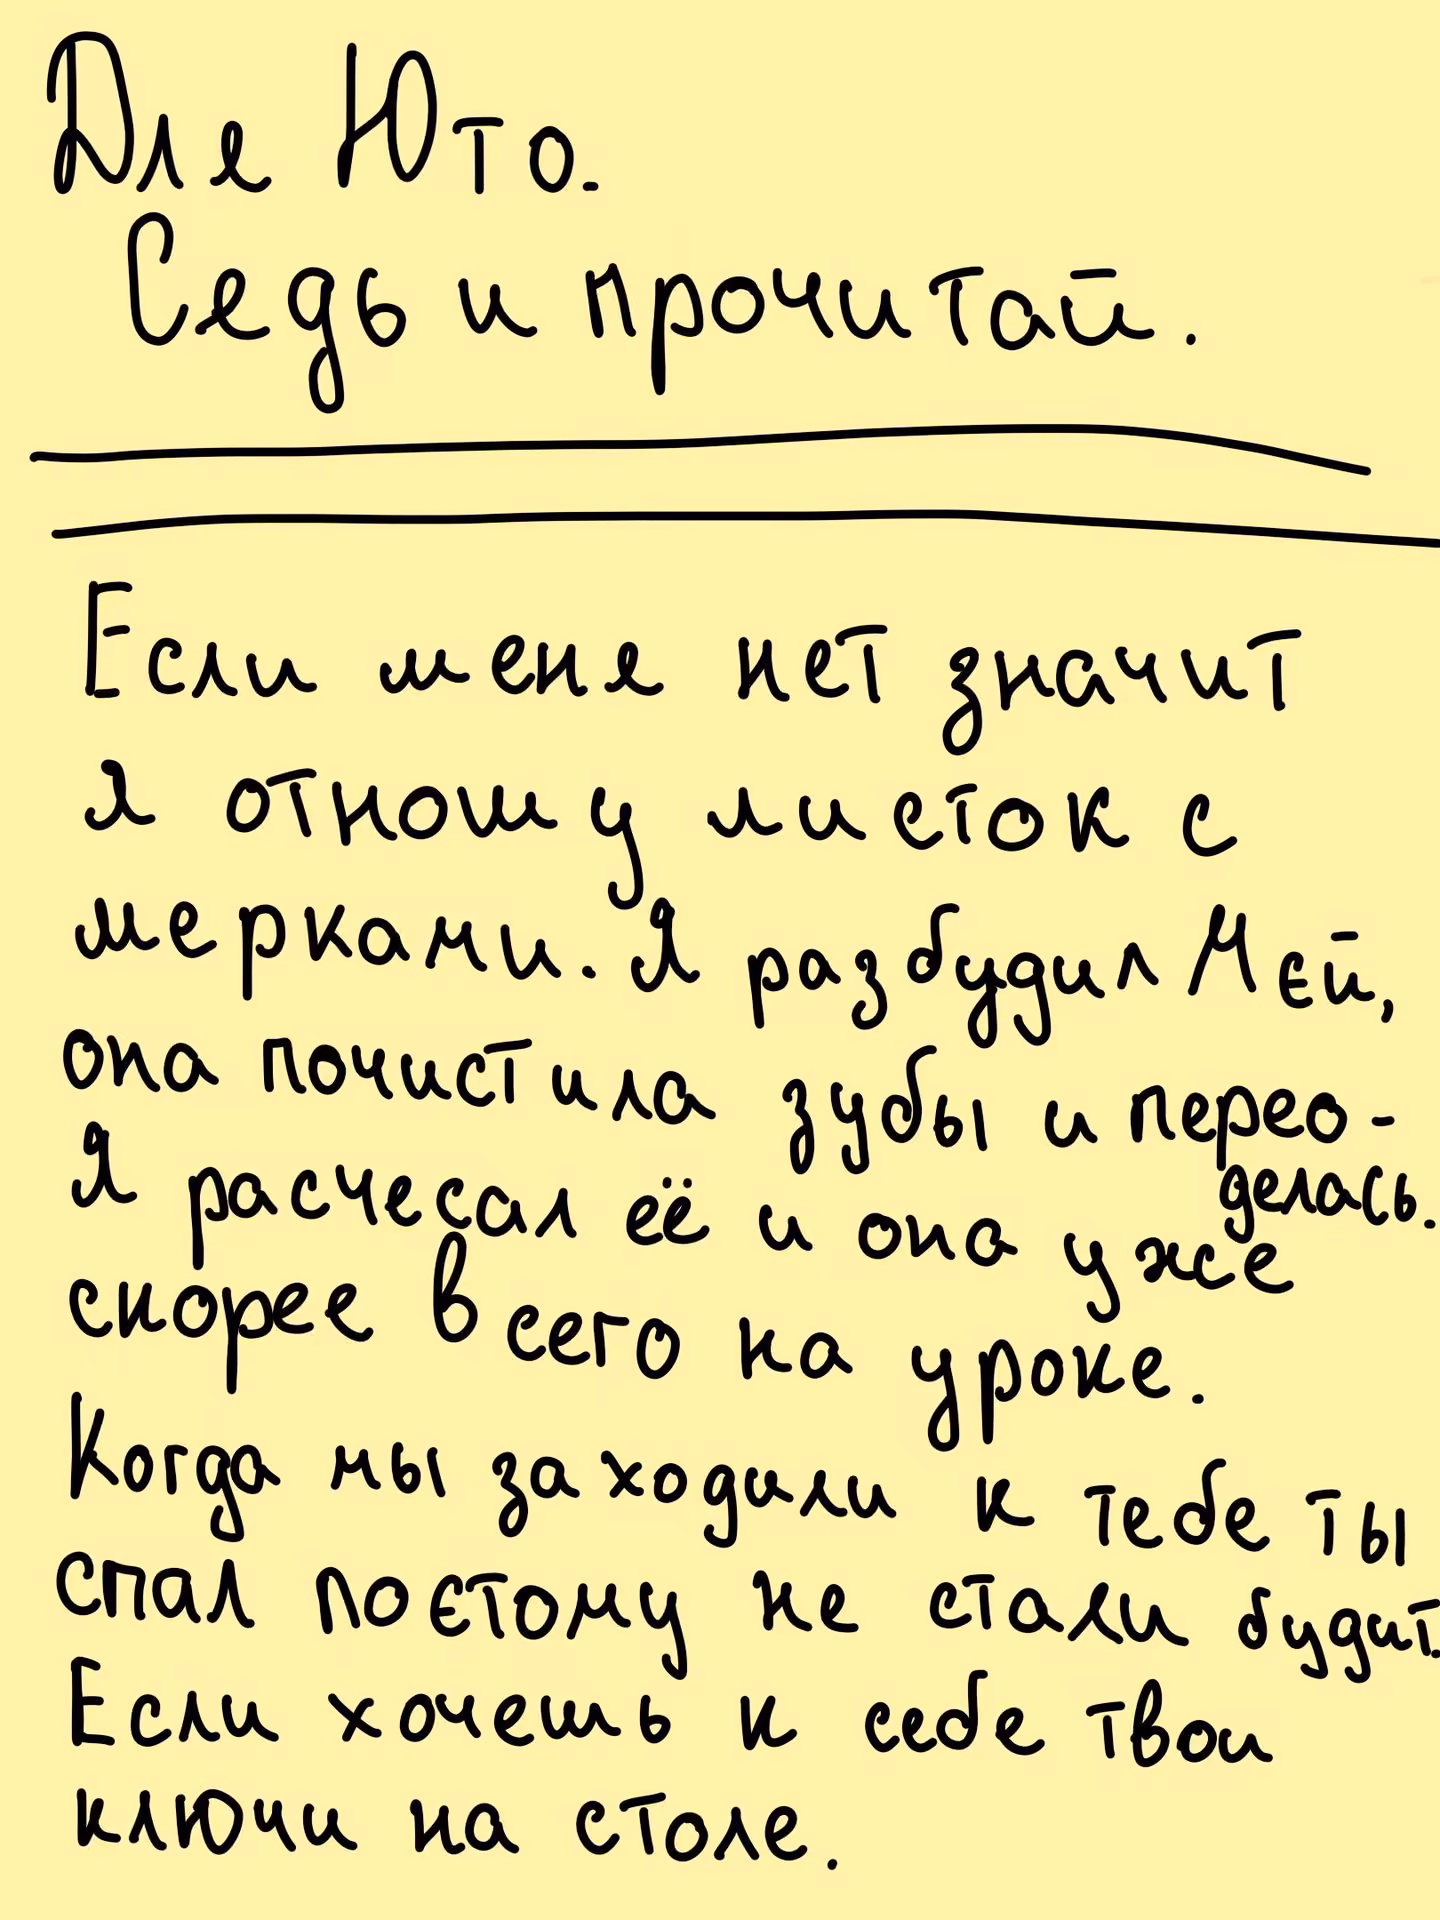 Для Юто.
Седь и прочитай.
Если меня нет значит
я отношу листок с
мерками. Я разбудил Мей,
она почистила зубы и перео-
делась.
Я расчесал её и она уже
скорее всего на уроке.
Когда мы заходили к тебе ты
спал поєтому не стали будит.
Если хочешь к себе твои
ключи на столе.